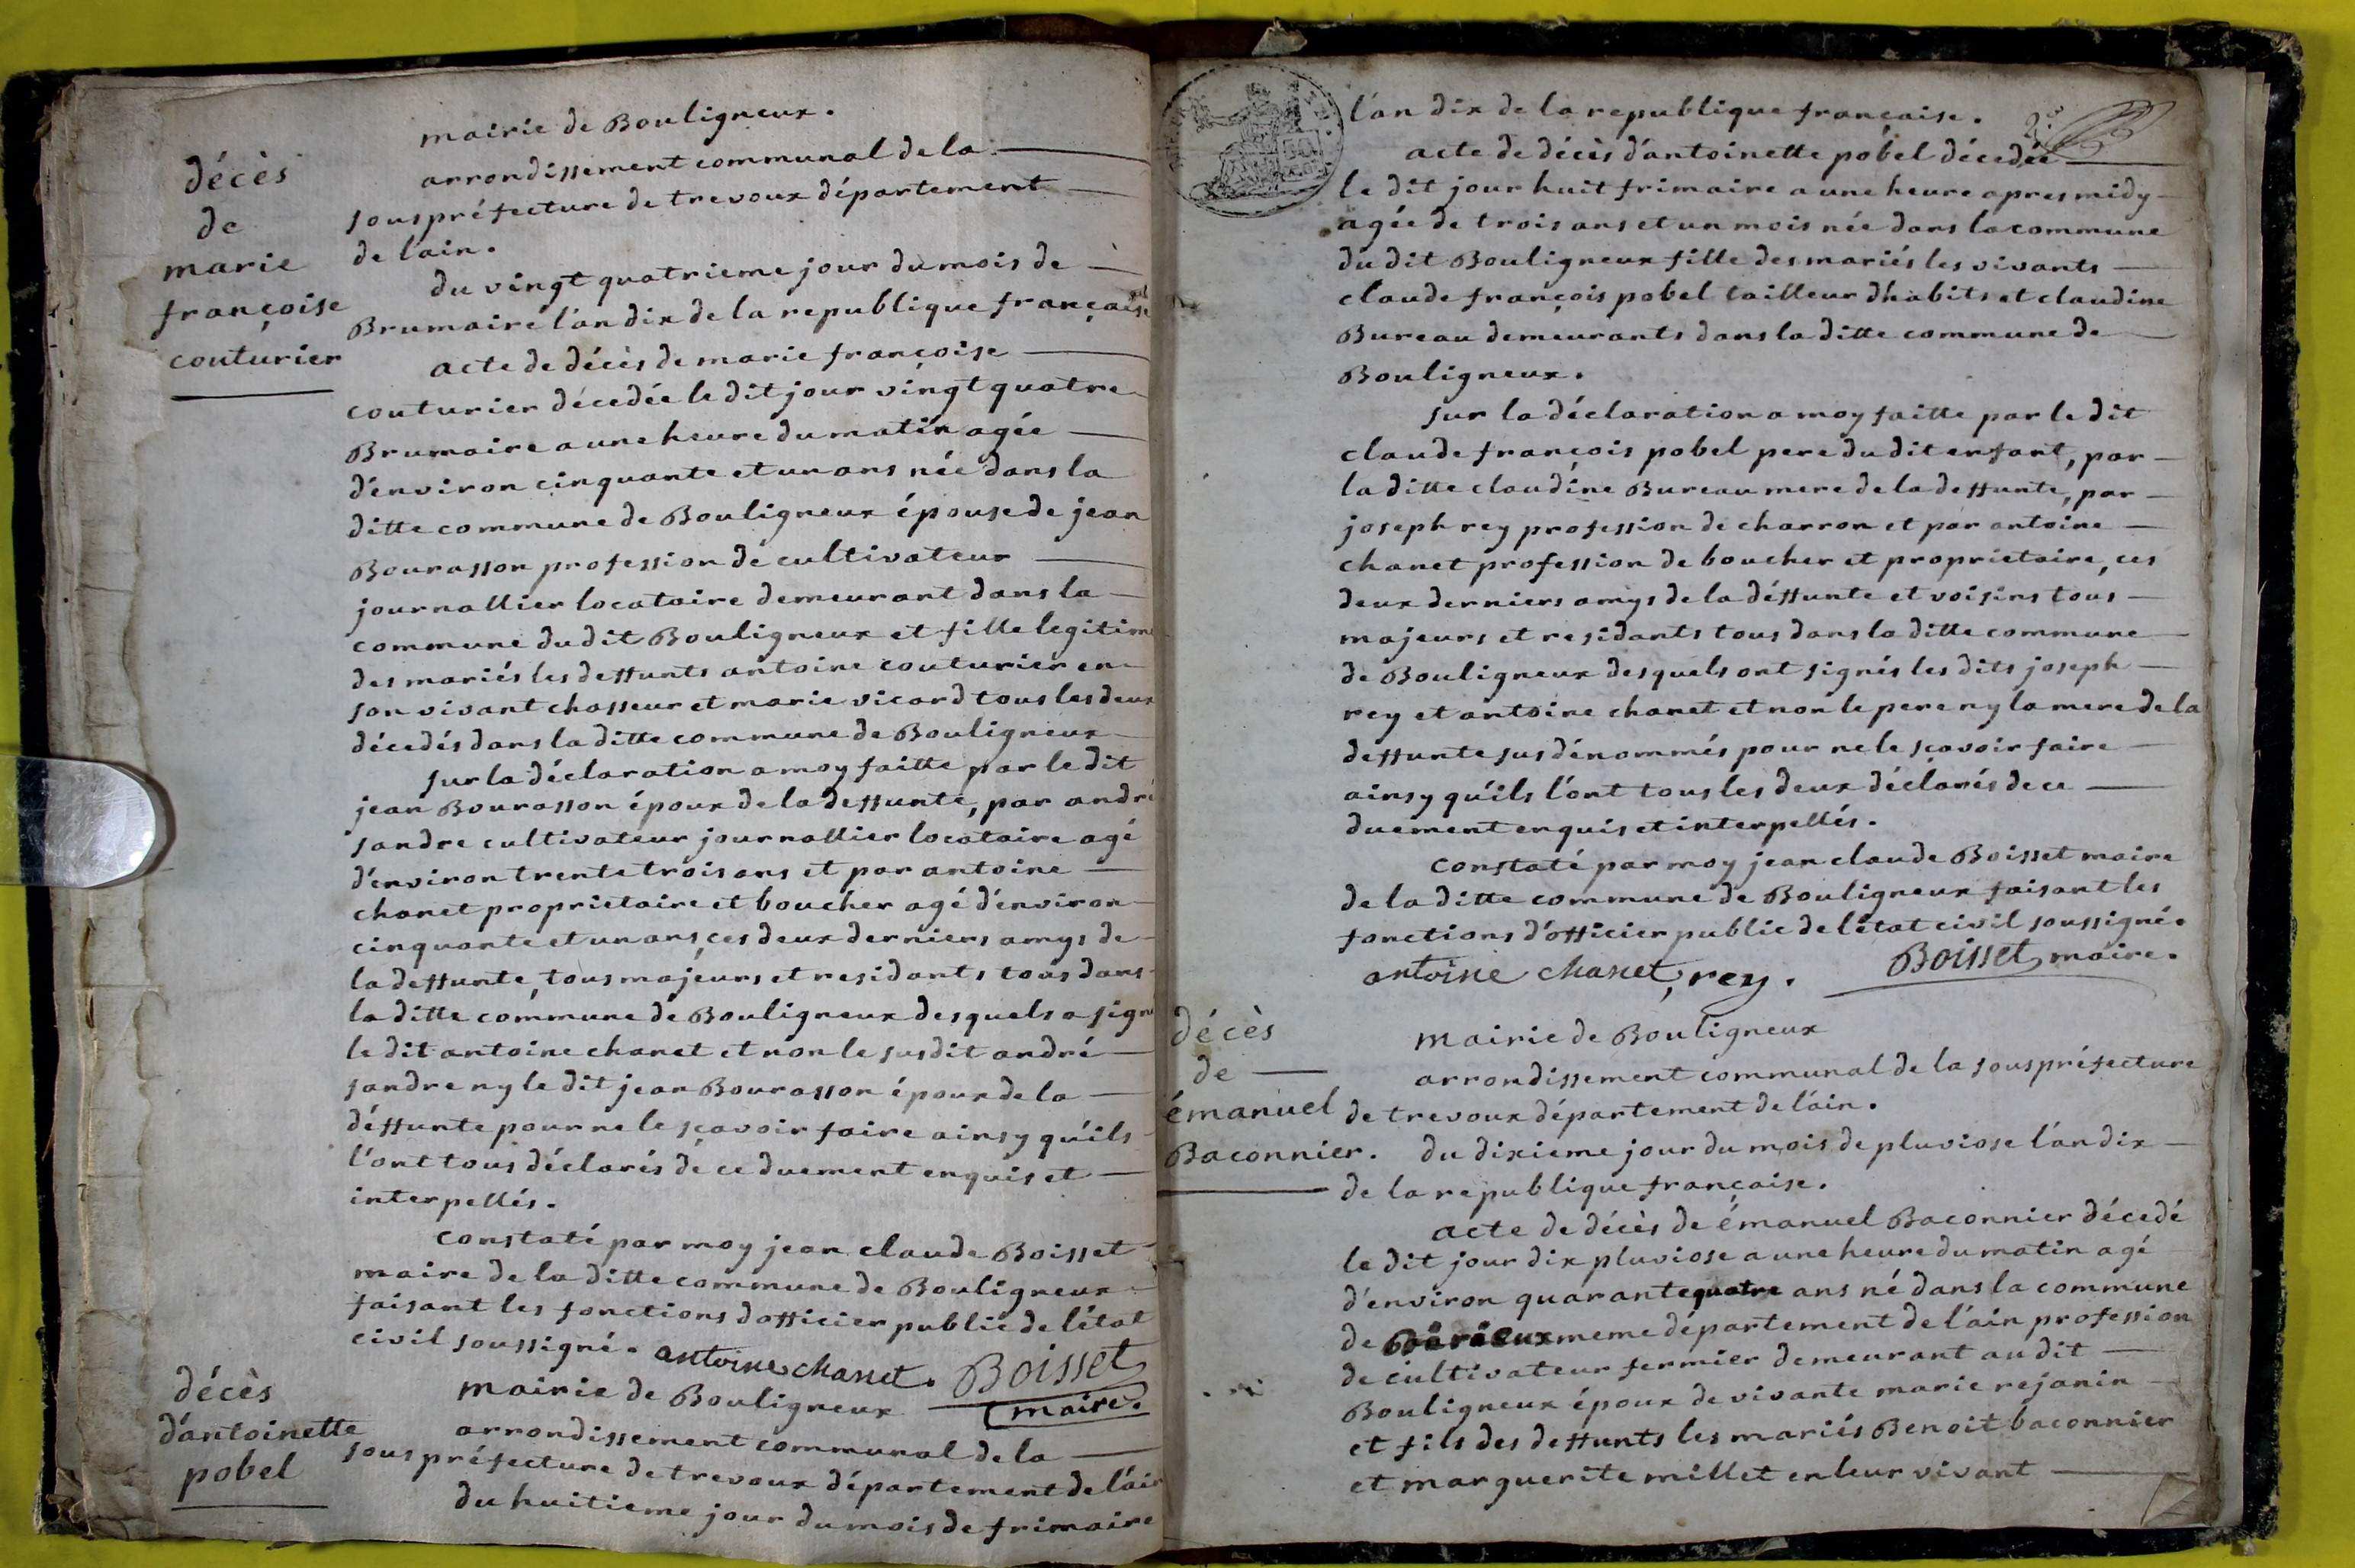 mairie de Bouligneux.
décès
de
marie
françoise
couturier
arrondissement communal de la
sous préfecture de trevoux département
de lain.
du vingt quatrieme jour du mois de
Brumaire l'an dix de la republique française
acte de décès de marie françoise
couturier décedée le dit jour vingt quatre
Brumaire a une heure du matin agée
d'environ cinquante et un ans née dans la
ditte commune de Bouligneux épouse de jean
Bourasson profession de cultivateur
journallier locataire demeurant dans la
commune du dit Bouligneux et fille legitime
des mariés les deffunts antoine couturier en
son vivant chasseur et marie vicard tous les deux
décedés dans la ditte commune de Bouligneux
sur la déclaration a moy faitte par le dit
jean Bourasson époux de la deffunte, par andré
sandre cultivateur journallier locataire agé
d'environ trente trois ans et par antoine
chanet proprietaire et boucher agé d'environ
cinquante et un ans, ces deux derniers amys de
la deffunte, tous majeurs et residants tous dans
la ditte commune de Bouligneux desquels a signé
le dit antoine chanet et non le susdit andré
sandre ny le dit jean Bourasson époux de la
déffunte pour ne le sçavoir faire ainsy qu'ils
l'ont tous déclarés de ce duement enquis et
interpellés.
constaté par moy jean claude Boisset
maire de la ditte commune de Bouligneux
faisant les fonctions d'officier public de l'état
civil soussigné. antoine chanet. Boisset
maire.
décès
d'antoinette
pobel
mairie de Bouligneux
arrondissement communal de la
sous préfecture de trevoux département de l'ain
du huitieme jour du mois de frimaire
l'an dix de la republique française.
acte de décès d'antoinette pobel décedée
le dit jour huit frimaire a une heure apres midy
agée de trois ans et un mois née dans la commune
du dit Bouligneux fille des mariés les vivants
claude françois pobel tailleur dhabits et claudine
Bureau demeurants dans la ditte commune de
Bouligneux.
sur la déclaration a moy faitte par le dit
claude françois pobel pere du dit enfant, par
la ditte claudine Bureau mere de la deffunte, par
joseph rey profession de charron et par antoine
chanet profession de boucher et proprietaire, ces
deux derniers amys de la déffunte et voisins tous
majeurs et residants tous dans la ditte commune
de Bouligneux desquels ont signés les dits joseph
rey et antoine chanet et non le pere ny la mere de la
deffunte sus dénommés pour ne le sçavoir faire
ainsy qu'ils l'ont tous les deux déclarés de ce
duement enquis et interpellés.
constaté par moy jean claude Boisset maire
de la ditte commune de Bouligneux faisant les
fonctions d'officier public de l'état civil soussigné.
antoine chanet, rey. Boisset maire.
décès
de
émanuel
Baconnier.
mairie de Bouligneux
arrondissement communal de la sous préfecture
de trevoux département de l'ain.
du dixieme jour du mois de pluviose l'an dix
de la republique française.
acte de décès de émanuel Baconnier décedé
le dit jour dix pluviose a une heure du matin agé
d'environ quarante quatre ans né dans la commune
de meme département de l'ain profession
de cultivateur fermier demeurant au dit
Bouligneux époux de vivante marie rejanin
et fils des deffunts les mariés Benoit baconnier
et marguerite millet en leur vivant